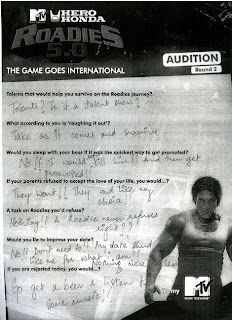 MTV HERO HONDA
ROADIES
5.0
THE GAME GOES INTERNATIONAL
AUDITION
Round 2
Talents that would help you survive on the Roadies journey?
Talents? Is it a talent show?
What according to you is 'roughing it out'?
Take as it comes and survive
Would you sleep with your boss if it was the quickest way to get promoted?
No!! I would kill him!! And then get
promoted!
If your parents refused to accept the love of your life, you would...?
They won't!! They will like my
choice!!
A task on Roadies you'd refuse?
Nothing!! A Roadie never refuses
right??
Would you lie to impress your date?
No!! Don't need to! My date should
like me for what I am! Nothing more
less
If you are rejected today, you would...?
Go get a beer & listen to
some music!
MTV
MUSIC TELEVISION